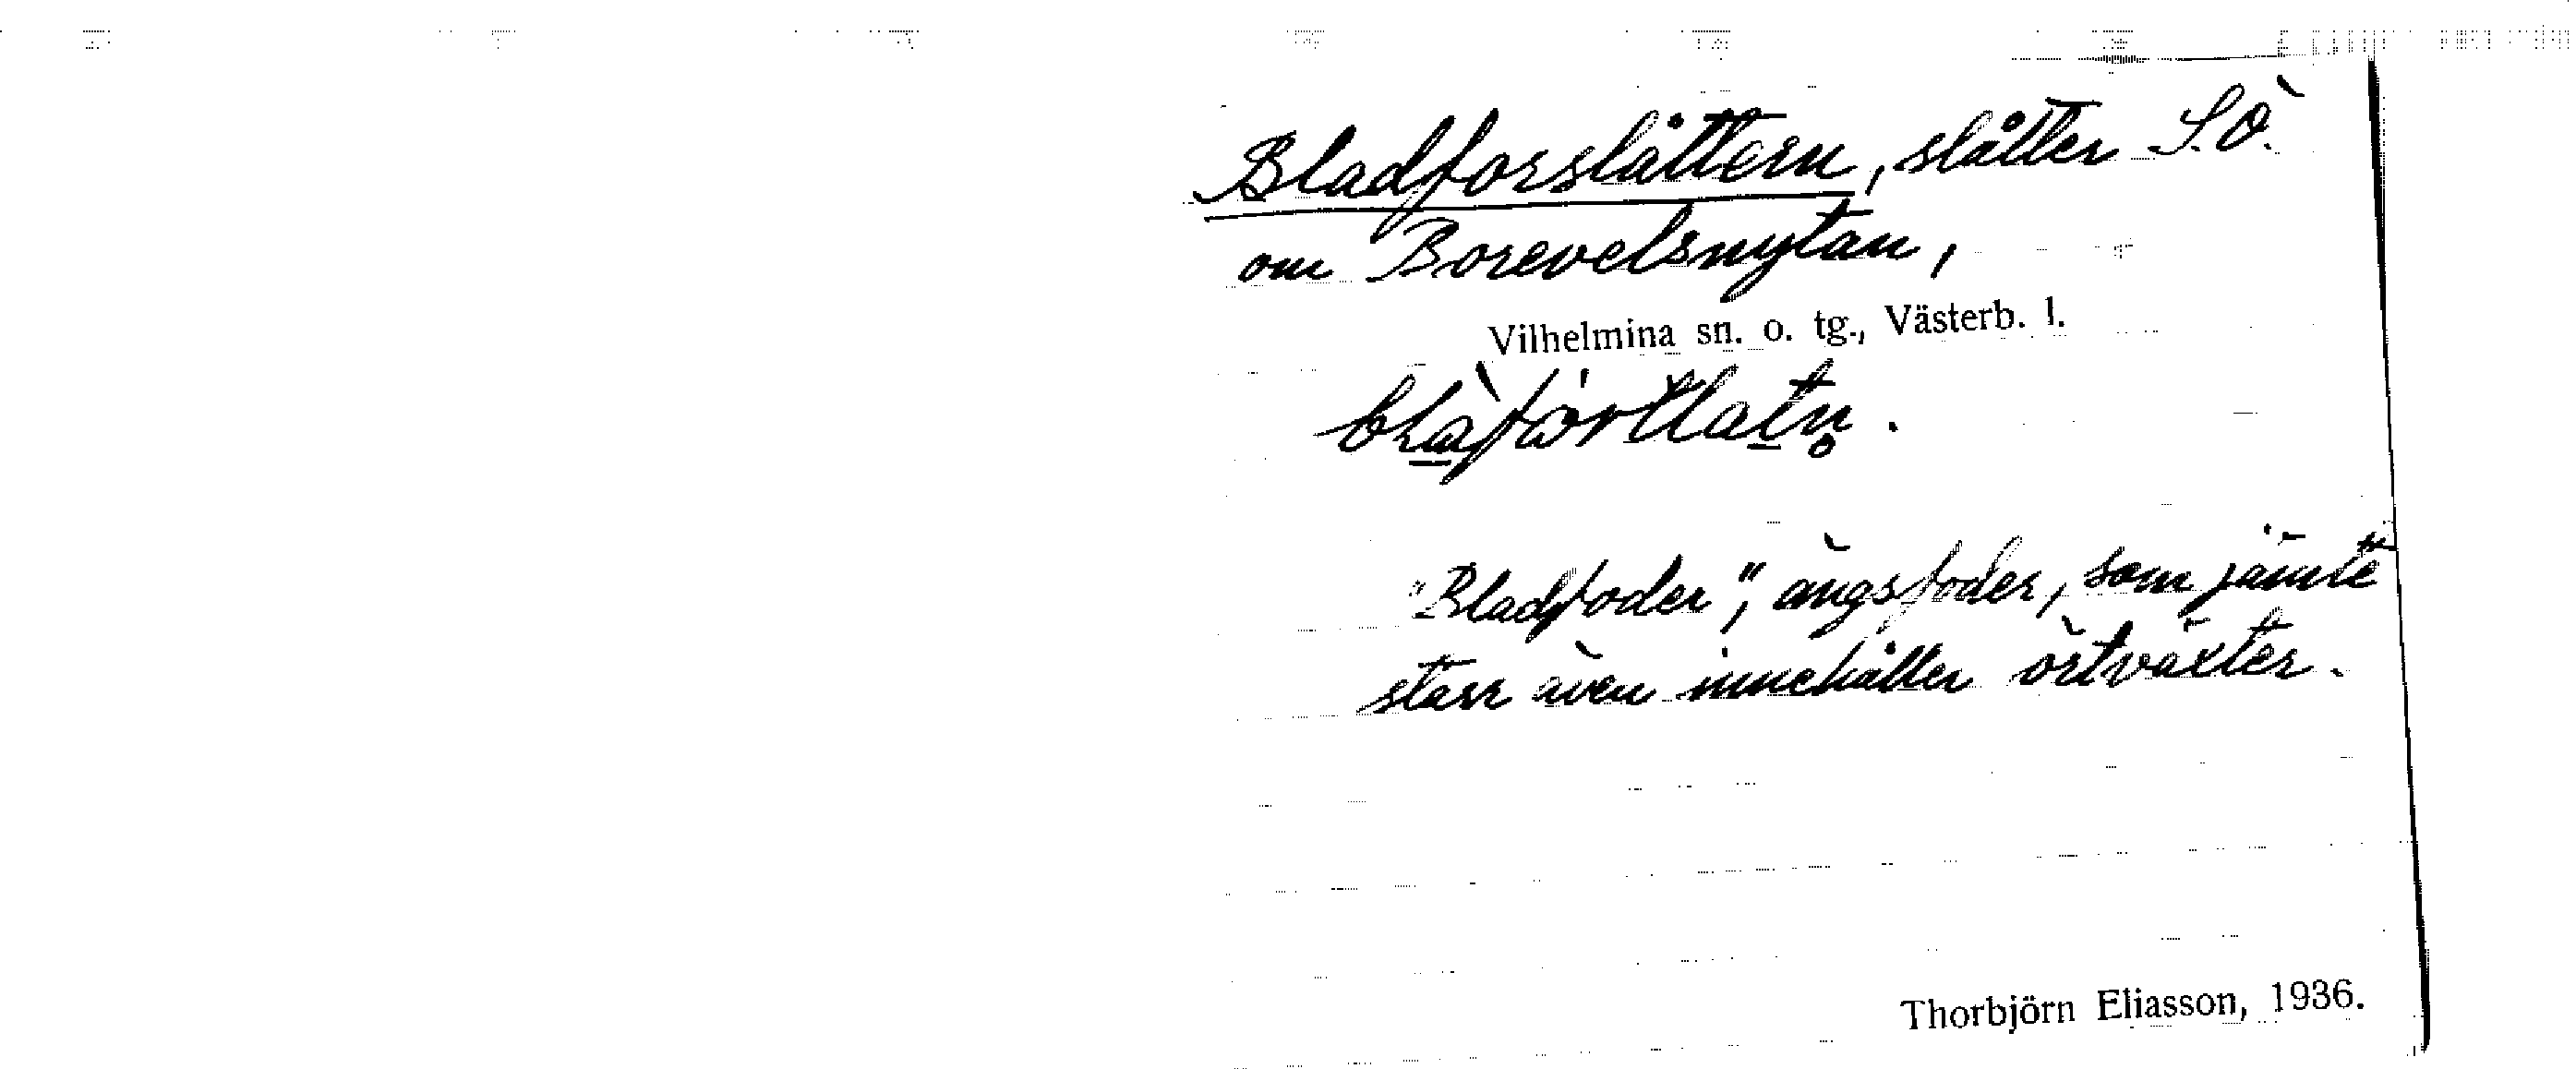 Bladforslåttern, slåtter S.Ö.
om Borevelsnytan,
Vilhelmina sn. o. tg., Västerb. l.
"Bladfoder", ängsfoder, som jämte
starr även innehåller örtväxter.
Thorbjörn Eliasson, 1936.